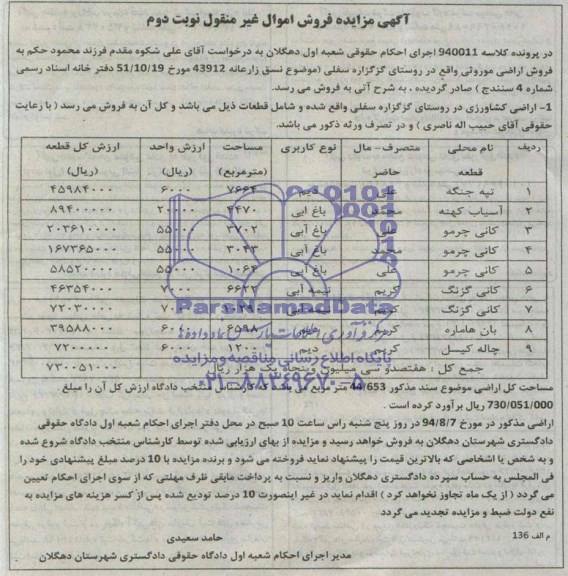 آگهی مزایده فروش اموال غیر منقول نوبت دوم
در پرونده کلاسه 940011 اجرای احکام حقوقی شعبه اول دهگلان به درخواست آقای علی شکوه مقدم فرزند محمود حکم به
فروش اراضی موروثی واقع در روستای گزگزاره سفلی (موضوع نسق زارعانه 43912 مورخ 51/10/19 دفتر خانه اسناد رسمی
شماره 4 سنندج ) صادر گردیده ، به شرح آتی به فروش می رسد.
1- اراضی کشاورزی در روستای گزگزاره سفلی واقع شده و شامل قطعات ذیل می باشد و کل آن به فروش می رسد ( با رعایت
حقوقی آقای حبیب اله ناصری ) و در تصرف ورثه ذکور می باشد.
ردیف نام محلی قطعه متصرف - مال حاضر نوع کاربری مساحت (مترمربع) ارزش واحد (ریال) ارزش کل قطعه (ریال)
۱ تپه جنگه علی دیم ۷۶۶۴ ۶۰۰۰ ۴۵۹۸۴۰۰۰
۲ آسیاب کهنه محمد باغ آبی ۴۴۷۰ ۲۰۰۰۰ ۸۹۴۰۰۰۰۰
۳ کانی چرمو علی باغ آبی ۳۷۰۲ ۵۵۰۰۰ ۲۰۳۶۱۰۰۰۰
۴ کانی چرمو محمد باغ آبی ۳۰۴۳ ۵۵۰۰۰ ۱۶۷۳۶۵۰۰۰
۵ کانی چرمو علی باغ آبی ۱۰۶۴ ۵۵۰۰۰ ۵۸۵۲۰۰۰۰
۶ کانی گزنگ کریم نیمه آبی ۶۶۲۲ ۷۰۰۰ ۴۶۳۵۴۰۰۰
۷ کانی گزنگ کریم ۷۲۰۳۰۰۰۰
۸ بان هاماره کریم دیم ۶۵۹۸ ۳۹۵۸۸۰۰۰
۹ چاله کیسل کریم دیم ۱۲۰۰ ۷۲۰۰۰۰۰
جمع کل : هفتصدو سی میلیون وپنجاه یک هزار ریال ۷۳۰۰۵۱۰۰۰
مساحت کل اراضی موضوع سند مذکور 44/653 متر مربع می باشد که کارشناس منتخب دادگاه ارزش کل آن را مبلغ
730/051/000 ریال برآورد کرده است .
اراضی مذکور در مورخ 94/8/7 در روز پنج شنبه راس ساعت 10 صبح در محل دفتر اجرای احکام شعبه اول دادگاه حقوقی
دادگستری شهرستان دهگلان به فروش خواهد رسید و مزایده از بهای ارزیابی شده توسط کارشناس منتخب دادگاه شروع شده
و به شخص یا اشخاصی که بالاترین قیمت را پیشنهاد نماید فروخته می شود و برنده مزایده با 10 درصد مبلغ پیشنهادی خود را
فی المجلس به حساب سپرده دادگستری دهگلان واریز و نسبت به پرداخت مابقی ظرف مهلتی که از سوی اجرای احکام تعیین
می گردد ( از یک ماه تجاوز نخواهد کرد ) اقدام نماید در غیر اینصورت 10 درصد تودیع شده پس از کسر هزینه های مزایده به
نفع دولت ضبط و مزایده تجدید می گردد
م الف 136
حامد سعیدی
مدیر اجرای احکام شعبه اول دادگاه حقوقی دادگستری شهرستان دهگلان
ParsNamadData
مرکز فرآوری اطلاعات پارس نماد داده ها
پایگاه اطلاع رسانی مناقصه و مزایده
۰۲۱-۸۸۳۴۹۶۷۰-۵